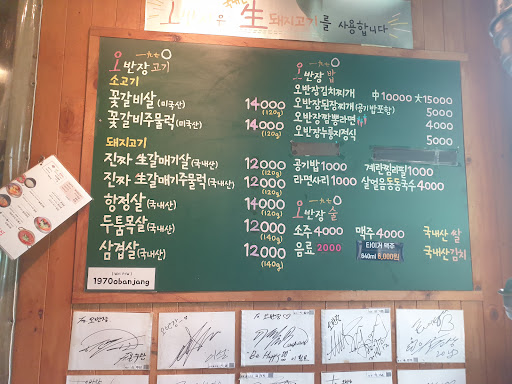 生 돼지고기를 사용합니다
오반장 고기
소고기
꽃갈비살(미국산) 14000 (120g)
꽃갈비주물럭(미국산) 14000 (120g)
돼지고기
진짜 生갈매기살(국내산) 12000 (120g)
진짜 生갈매기주물럭(국내산) 12000 (120g)
항정살(국내산) 14000 (120g)
두툼목살(국내산) 12000 (140g)
삼겹살(국내산) 12000 (140g)
1970obanjang
오반장 밥
오반장김치찌개 中10000 大15000
오반장된장찌개(공기밥포함) 5000
오반장짬뽕라면 4000
오반장누룽지정식 5000
공기밥1000 계란찜리필1000
라면사리1000 살얼음동동국수4000
오반장 술
소주4000 맥주4000
음료2000
타이거 맥주
640ml 6,000원
국내산 쌀
국내산김치
Be Happy!!!